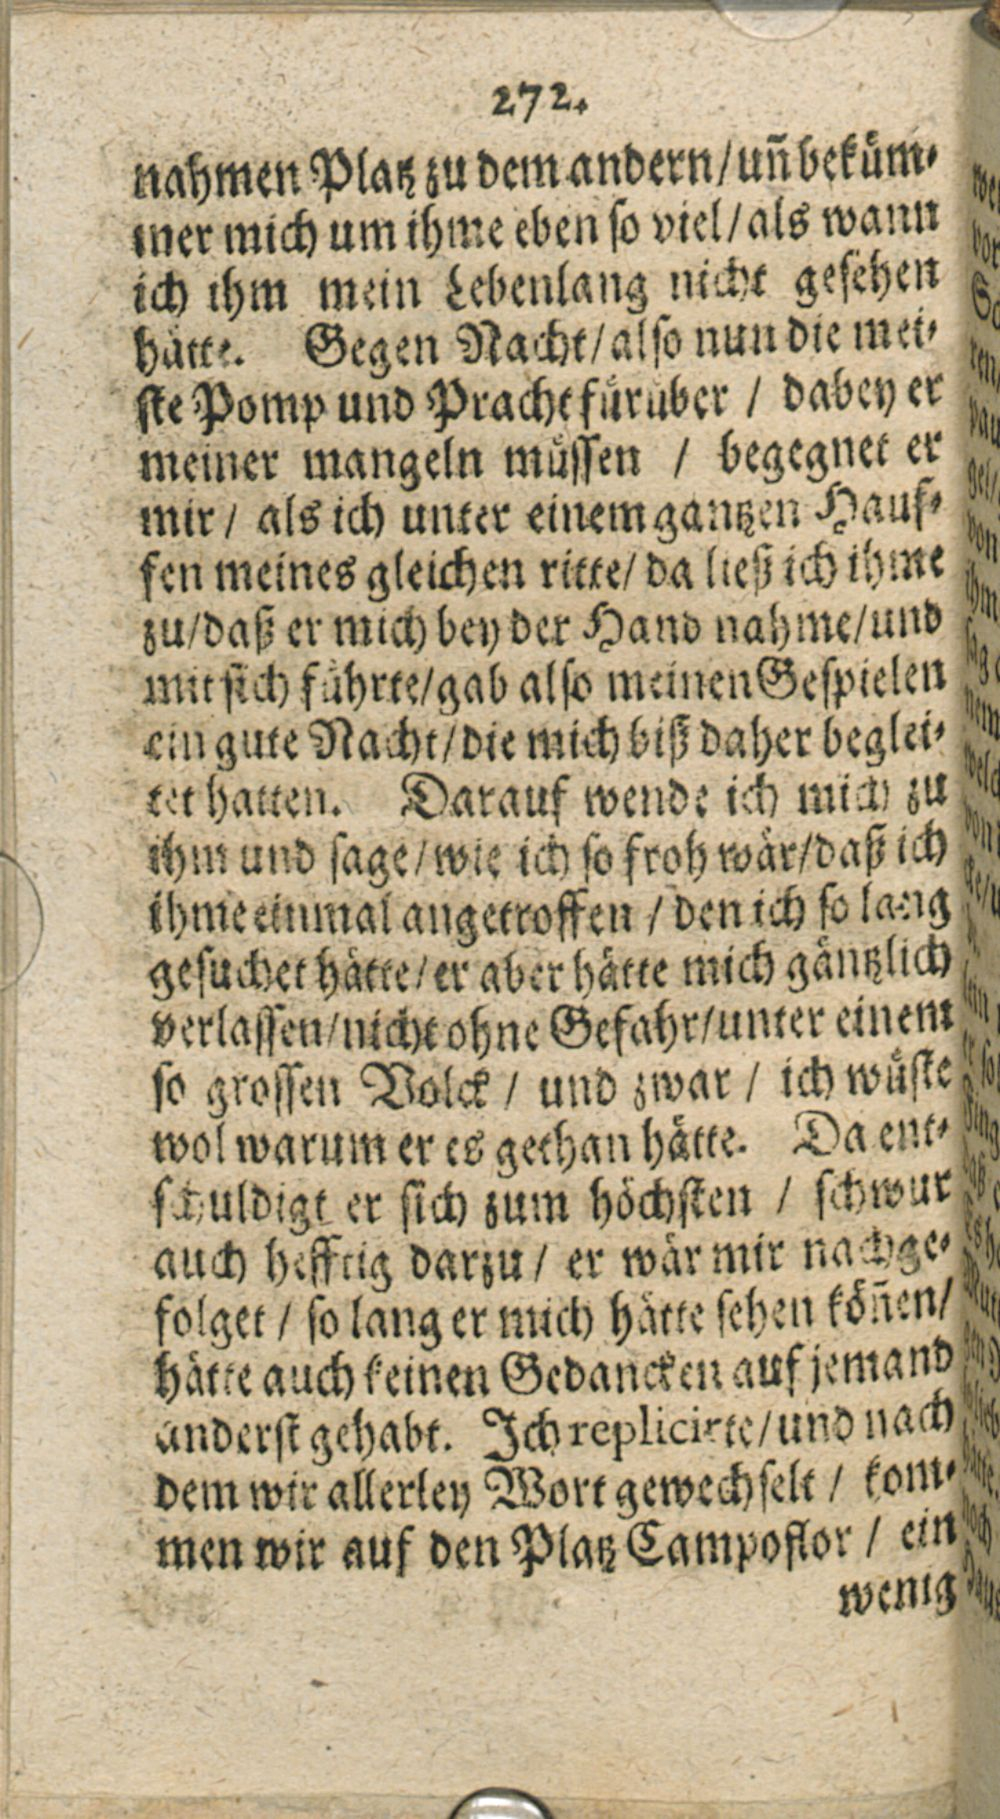 272.
nahmen Platz zu dem andern/ uñ beküm-
mer mich um ihme eben so viel/ als wann
ich ihm mein Lebenlang nicht gesehen
hätte. Gegen Nacht/ also nun die mei-
ste Pomp und Pracht fürüber / dabey er
meiner mangeln müssen / begegnet er
mir/ als ich unter einem gantzen Hauf-
fen meines gleichen ritte/ da ließ ich ihme
zu/ daß er mich bey der Hand nahme/ und
mit sich führte/ gab also meinen Gespielen
ein gute Nacht/ die mich biß daher beglei-
tet hatten. Darauf wende ich mich zu
ihm und sage/ wie ich so froh wär/ daß ich
ihme einmal angetroffen / den ich so lang
gesuchet hätte/ er aber hätte mich gäntzlich
verlassen/ nicht ohne Gefahr/ unter einem
so grossen Volck / und zwar / ich wüste
wol warum er es gethan hätte. Da ent-
schuldigt er sich zum höchsten / schwur
auch hefftig darzu/ er wär mir nachge-
folget / so lang er mich hätte sehen köñen/
hätte auch keinen Gedancken auf jemand
anderst gehabt. Ich replicirte/ und nach
dem wir allerley Wort gewechselt / kom-
men wir auf den Platz Campoflor / ein
wenig